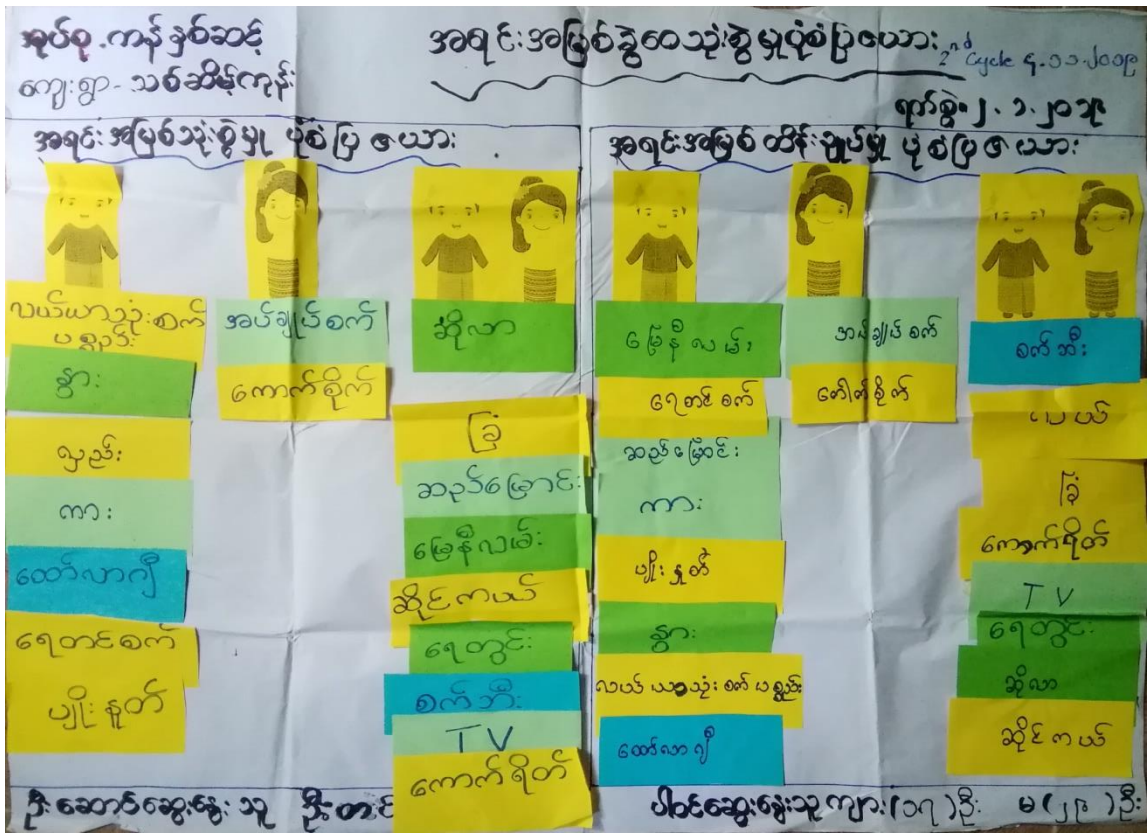 အုပ်စု-ကန်နှစ်ဆင့်
ကျေးရွာ-သစ်ဆိမ့်ကုန်း
အရင်းအမြစ်ခွဲဝေသုံးစွဲမှုပုံစံပြဇယား
2nd Cycle
ရက်စွဲ၊ ၂.၁.၂၀၁၉
အရင်းအမြစ်သုံးစွဲမှု ပုံစံပြ ဇယား
လယ်ယာသုံးစက်
ပစ္စည်း
နွား
လှည်း
ကား
ထော်လာဂျီ
ရေတင်စက်
ပျိုးနှုတ်
အပ်ချုပ်စက်
ကောက်စိုက်
ဆိုလာ
ခြံ
ဆည်မြောင်း
မြေနီလမ်း
ဆိုင်ကယ်
ရေတွင်း
စက်ဘီး
TV
ကောက်ရိတ်
အရင်းအမြစ် ထိန်းချုပ်မှု ပုံစံပြ ဇယား
မြေနီလမ်း
ရေတင်စက်
ဆည်မြောင်း
ကား
ပျိုးနှုတ်
နွား
လယ်ယာသုံးစက်ပစ္စည်း
ထော်လာဂျီ
အပ်ချုပ်စက်
ကောက်စိုက်
စက်ဘီး
ခြံ
ကောက်ရိတ်
TV
ရေတွင်း
ဆိုလာ
ဆိုင်ကယ်
ဦးဆောင်ဆွေးနွေးသူ
ပါဝင်ဆွေးနွေးသူ ကျား(၁၇)ဦး မ(၂၉)ဦး